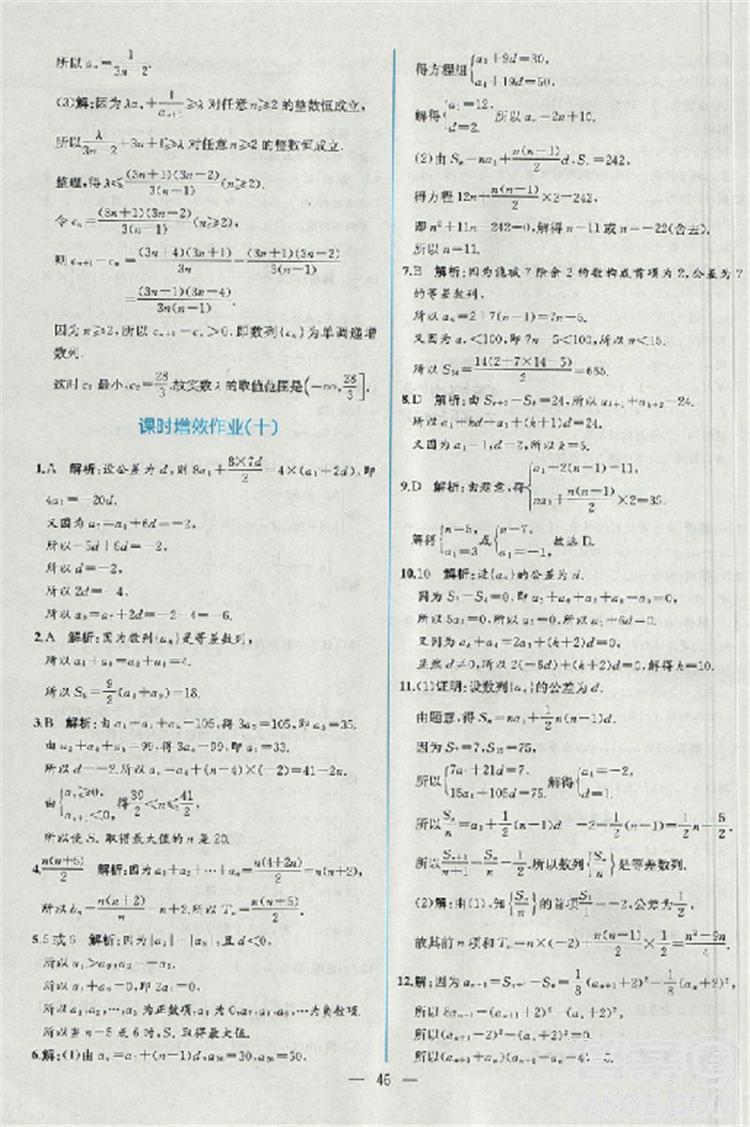 所以 aₙ=1/(3n-2).
(3)解:因为 λaₙ+1/aₙ₊₁≥λ 对任意 n≥2 的整数恒成立,
所以 λ/(3n-2)+3n+1≥λ 对任意 n≥2 的整数恒成立.
整理,得 λ≤(3n+1)(3n-2)/3(n-1) (n≥2).
令 cₙ=(3n+1)(3n-2)/3(n-1) (n≥2),
则 cₙ₊₁-cₙ=(3n+4)(3n+1)/3n-(3n+1)(3n-2)/3(n-1)
因为 n≥2,所以 cₙ₊₁-cₙ>0,即数列{cₙ}为单调递增
数列.
这时 c₂ 最小,c₂=28/3,故实数 λ 的取值范围是(-∞,28/3].
课时增效作业(十)
1.A 解析:设公差为 d,则 8a₁+8×7d/2=4×(a₁+2d),即
4a₁=-20d.
又因为 a₇=a₁+6d=-2,
所以-5d+6d=-2,
所以 d=-2,
所以 2d=-4,
所以 a₉=a₇+2d=-2-4=-6.
2.A 解析:因为数列{aₙ}是等差数列,
所以 S₉=9/2(a₁+a₉)=18.
3.B 解析:由 a₁+a₃+a₅=105,得 3a₃=105,即 a₃=35.
由 a₂+a₄+a₆=99,得 3a₄=99,即 a₄=33.
所以 d=-2,aₙ=a₄+(n-4)×(-2)=41-2n.
由{aₙ≥0, aₙ₊₁<0, 得 39/2<n≤41/2.
所以使 Sₙ 取得最大值的 n 是 20.
4.n(n+5)/2 解析:因为 a₁+a₂+…+aₙ=n(4+2n)/2=n(n+2),
所以 bₙ=n(n+2)/n=n+2,所以 Tₙ=n(n+5)/2.
5.5 或 6 解析:因为|a₃|=|a₉|,公差 d<0,
所以 a₁,a₂,…,a₅ 为正数项,a₆=0,a₇,a₈,…为负数项,
所以当 n=5 或 6 时,Sₙ 取得最大值.
6.解:(1)由 aₙ=a₁+(n-1)d,a₁₀=30,a₂₀=50,
得方程组{a₁+9d=30, a₁+19d=50,
解得{a₁=12, d=2. 所以 aₙ=2n+10.
(2)由 Sₙ=na₁+n(n-1)/2 d,Sₙ=242,
得方程 12n+n(n-1)/2×2=242,
即 n²+11n-242=0,解得 n=11 或 n=-22(舍去).
所以 n=11.
7.B 解析:因为能被 7 除余 2 的数构成首项为 2,公差为 7
的等差数列,
所以 aₙ=2+7(n-1)=7n-5.
又因为 aₙ<100,即 7n-5<100,所以 n<15.
所以 S₁₄=14(2+7×14-5)/2=665.
8.D 解析:由 Sₖ₊₂-Sₖ=24,所以 aₖ₊₁+aₖ₊₂=24,
所以 a₁+kd+a₁+(k+1)d=24,
又因为 a₁=1,d=2,所以 k=5.
9.D 解析:由题意,得{a₁+2(n-1)=11, na₁+n(n-1)/2×2=35.
解得{n=5, a₁=3 或{n=7, a₁=-1, 故选 D.
10.10 解析:设{aₙ}的公差为 d.
因为 S₉-S₄=0,即 a₅+a₆+a₇+a₈+a₉=0,
所以 5a₇=0,故 a₇=0.
又因为 aₖ+a₄=a₇+(k-7)d+a₇-3d=0,
11.(1)证明:设数列{aₙ}的公差为 d.
由题意,得 Sₙ=na₁+1/2n(n-1)d.
因为 S₇=7,S₁₅=75,
所以{7a₁+21d=7, 15a₁+105d=75, 解得{a₁=-2, d=1.
所以 Sₙ/n=a₁+1/2(n-1)d=-2+1/2(n-1)=1/2n-5/2.
所以 Sₙ₊₁/(n+1)-Sₙ/n=1/2,所以数列{Sₙ/n}是等差数列.
(2)解:由(1),知{Sₙ/n}的首项 S₁/1=-2,公差为 1/2,
故其前 n 项和 Tₙ=-2n+n(n-1)/2×1/2=(n²-9n)/4.
12.解:因为 aₙ₊₁=Sₙ₊₁-Sₙ=1/8(aₙ₊₁+2)²-1/8(aₙ+2)²,
所以 8aₙ₊₁=(aₙ₊₁+2)²-(aₙ+2)²,
所以(aₙ₊₁-2)²-(aₙ+2)²=0,
— 46 —